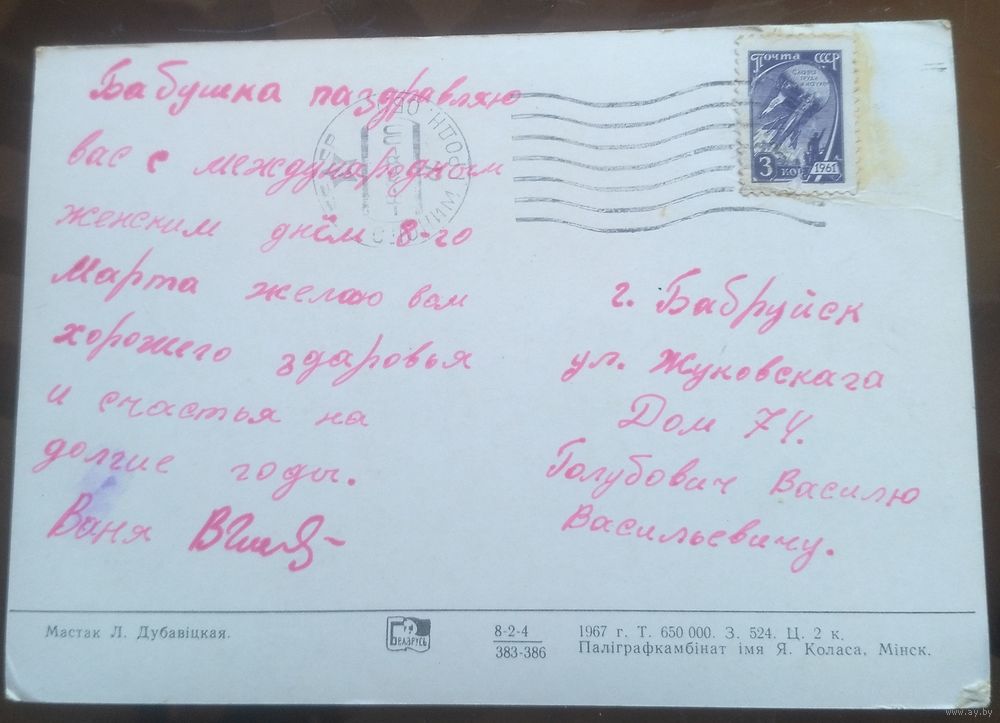 Бабушка паздравляю
вас с международным
женским днём 8-го
Марта желаю вам
хорошего здаровья
и счастья на
долгие годы.
Ваня
Почта СССР
3 коп
1961
г. Бабруйск
ул. Жуковскага
Дом 74.
Голубович Василю
Васильевичу.
Мастак Л. Дубавіцкая.
Беларусь
8-2-4
383-386
1967 г. Т. 650 000. З. 524. Ц. 2 к.
Паліграфкамбінат імя Я. Коласа, Мінск.
www.ay.by